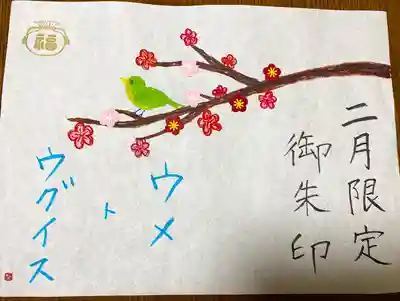 福
二月限定
御朱印
ウメ
ト
ウグイス